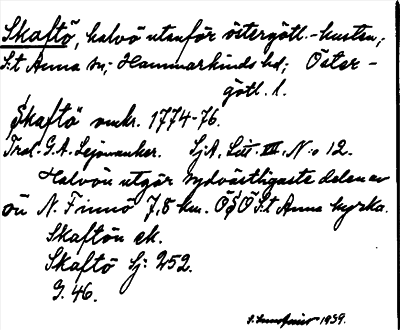 Skaftö, halvö utanför östergötl.-kusten;
S:t Anna sn; Hammarkinds hd; Öster-
götl. l.
Skaftö omkr. 1774-76.
Trol. G. A. Leijonanker. SjA, Litt. III, N:o 12.
Halvön utgör sydvästligaste delen av
ön N. Finnö 7,8 km. ÖSÖ S:t Anna kyrka.
Skaftön ek.
Skaftö Sj: 252.
G. 46.
1939.